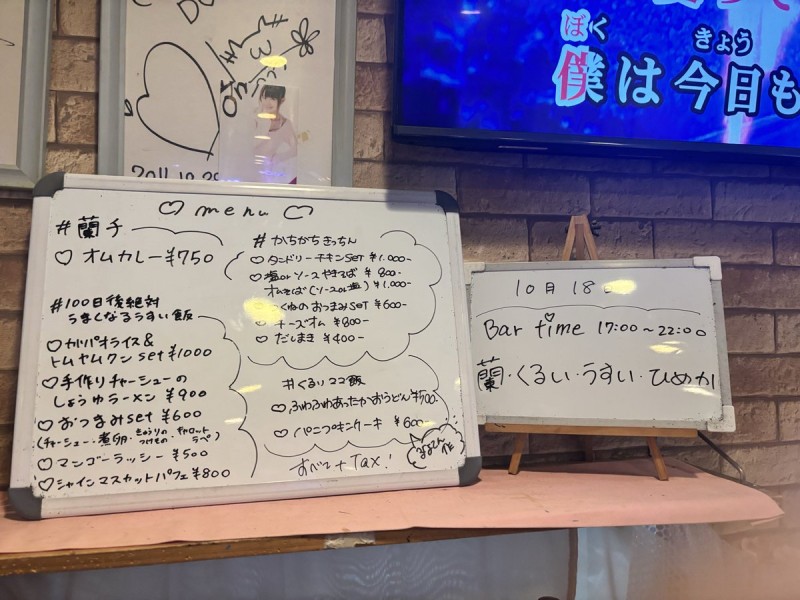 2011.10.29
ぼく きょう
僕は今日も
♡ menu ♡
#蘭子
♡ オムカレー ¥750
#100日後絶対
うまくなるうすい飯
♡ ガパオライス &
トムヤムクン set ¥1000
♡ 手作りチャーシューの
しょうゆラーメン ¥900
♡ おつまみset ¥600
(チャーシュー・煮卵・きゅうりのつけもの・キャロットラペ)
♡ マンゴーラッシー ¥500
♡ シャインマスカットパフェ ¥800
# かちかちきっちん
♡ タンドリーチキンSET ¥1.000-
♡ 塩orソースやきそば ¥800-
オムそば(ソースor塩) ¥1.000-
くねのおつまみSET ¥600-
チーズオム ¥800-
♡ だしまき ¥400-
#くるり22飯
♡ ふわふわあったかおうどん ¥500
♡ パンプキンケーキ ¥600
すべて + Tax!
作
10月18
Bar time 17:00~22:00
蘭・くるい・うすい・ひめか